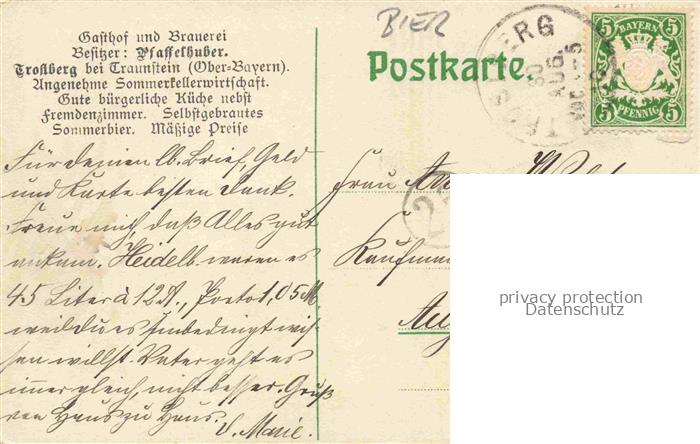 Gasthof und Brauerei
Besitzer: Pfaffelhuber.
Trostberg bei Traunstein (Ober-Bayern).
Angenehme Sommerkellerwirtschaft.
Gute bürgerliche Küche nebst
Fremdenzimmer. Selbstgebrautes
Sommerbier. Mäßige Preise
BIER
Postkarte.
BERG
30
AUG.
BAYERN
5 5
5 PFENNIG 5
Für deinen lb. Brief, Geld
und Karte besten Dank.
Freue mich, daß Alles gut
ankam. Heidelb. waren es
45 Liter à 12 ₰., Porto 1,05 M
weil du es unbedingt wis-
sen willst. Vater geht es
immer gleich, nicht besser. Gruß
von Haus zu Haus.
Marie.
Frau
Kaufman
privacy protection
Datenschutz